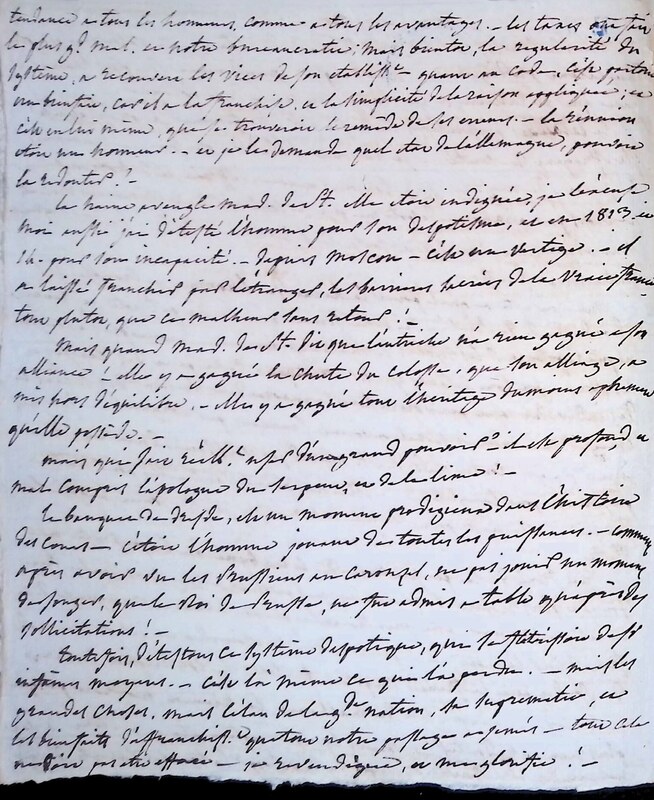 tendance a tous les honneurs, comme a tous les avantages. – les taxes ont fait
le plus gd. mal, et notre bureaucratie; mais bientot, la regularité du
systême, a recouvert les vices de son etablisst. – quant au code, c'est partout
un bienfait, car il a la franchise, et la simplicité de la raison appliquée; et
c'est en lui même, que se trouveroit le remede de ses erreurs. – la réunion
etoit un honneur. – et je le demande quel etat de l'allemagne, pouvoit
la redouter! –
la haine aveugle mad. de St. elle etoit indignée, je l'excuse
moi aussi j'ai détesté l'homme pour son despotisme, et en 1813. et
14. pour son incapacité. – depuis Moscou – c'est un vertige. – il
a laissé franchir par l'étranger, les barrieres sacrées de la vraie france
tout plutot, que ce malheur sans retour! –
Mais quand mad. de St. dit que l'autriche n'a rien gagné a son
alliance! – elle y a gagné la chute du colosse, que son alliage, a
mis hors d'équilibre. – elle y a gagné tout l'héritage
qu'elle possede. –
mais qui fait réellt. usage d'un grand pouvoir? – il est profond, a
mal compris l'apologue du serpent, et de la lime! –
le banquet de dresde, est un moment prodigieux dans l'histoire
des cours – c'etoit l'homme jouant de toutes les puissances. – comment
après avoir vu les Prussiens au carouzel, ne pas jouir un moment
de songer, que le Roi de Prusse, ne fut admis a table qu'après des
sollicitations! –
toutefois, détestons ce systême despotique, qui se flétrissoit de si
infames moyens. – c'est là même ce qui l'a perdu. – mais les
grandes choses, mais l'élan de la gde. nation, sa suprematie, et
les bienfaits d'affranchisst. que tout notre passage a semés – tout cela
ne doit pas etre effacé – je le revendique, et m'en glorifie! –